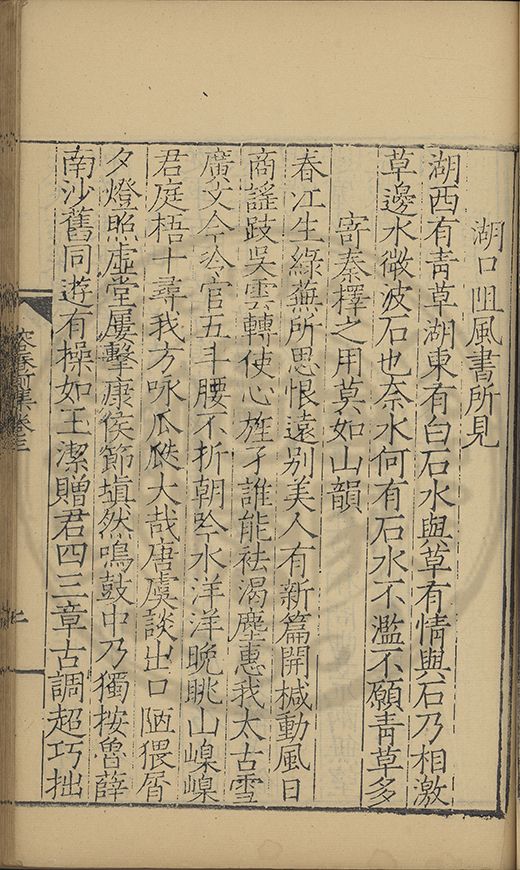 湖口阻風書所見
湖西有青草湖東有白石水與草有情與石乃相激
草邊水微波石也奈水何有石水不濫不願青草多
寄秦擇之用莫如山韻
春江生綠蕪所思恨遠别美人有新篇開椷動風日
商謡跂吳雲轉使心旌孑誰能袪渴塵惠我太古雪
廣文今冷官五斗腰不折朝吟水洋洋晩眺山嵲嵲
君庭梧十尋我方咏瓜瓞大哉唐虞談出口陋猥屑
夕燈照虛堂屢擊康侯節塡然鳴鼓中乃獨按魯薛
南沙舊同遊有操如玉潔贈君四三章古調超巧拙
容春前集卷三